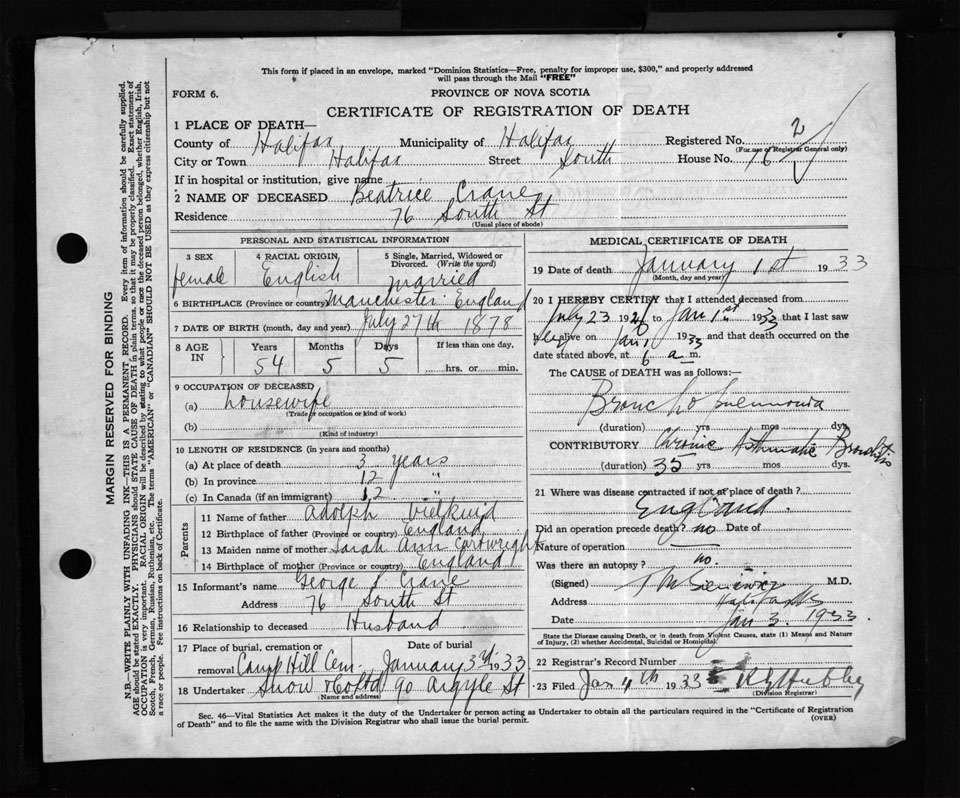 This form if placed in an envelope, marked "Dominion Statistics—Free, penalty for improper use, $300," and properly addressed
will pass through the Mail "FREE"
FORM 6.
PROVINCE OF NOVA SCOTIA
CERTIFICATE OF REGISTRATION OF DEATH
1 PLACE OF DEATH—
County of Halifax Municipality of Halifax Registered No. 2
(For use of Registrar General only)
City or Town Halifax Street South House No. 76
If in hospital or institution, give name
2 NAME OF DECEASED Beatrice Crane
Residence 76 South St
(Usual place of abode)
PERSONAL AND STATISTICAL INFORMATION
3 SEX female
4 RACIAL ORIGIN English
5 Single, Married, Widowed or Divorced. (Write the word) married
6 BIRTHPLACE (Province or country) Manchester England
7 DATE OF BIRTH (month, day and year) July 27th 1878
8 AGE IN Years Months Days If less than one day,
54 5 5 hrs. or min.
9 OCCUPATION OF DECEASED
(a) housewife
(Trade or occupation or kind of work)
(b)
(Kind of industry)
10 LENGTH OF RESIDENCE (in years and months)
(a) At place of death 3 years
(b) In province 12 "
(c) In Canada (if an immigrant) 12 "
Parents
11 Name of father Adolph
12 Birthplace of father (Province or country) England
13 Maiden name of mother Sarah Ann Cartwright
14 Birthplace of mother (Province or country) England
15 Informant's name George J Crane
Address 76 South St
16 Relationship to deceased Husband
17 Place of burial, cremation or removal Camp Hill Cem. Date of burial January 3rd 1933
18 Undertaker Snow & Co Ltd 90 Argyle St
(Name and address)
MEDICAL CERTIFICATE OF DEATH
19 Date of death January 1st 1933
(Month, day and year)
20 I HEREBY CERTIFY that I attended deceased from
July 23 to Jan 1st 1933 that I last saw
her alive on Jan 1 1933 and that death occurred on the
date stated above, at 6 a m.
The CAUSE of DEATH was as follows:—
Broncho pneumonia
(duration) yrs mos dys
CONTRIBUTORY Chronic Asthmatic Bronchitis
(duration) 35 yrs mos dys.
21 Where was disease contracted if not at place of death?
England.
Did an operation precede death? no Date of
Nature of operation
Was there an autopsy? no.
(Signed) M.D.
Address Halifax NS
Date Jan 3. 1933.
State the Disease causing Death, or in death from Violent Causes, state (1) Means and Nature
of Injury, (2) whether Accidental, Suicidal or Homicidal.
22 Registrar's Record Number
23 Filed Jan 4th 1933 Hubley
(Division Registrar)
Sec. 46—Vital Statistics Act makes it the duty of the Undertaker or person acting as Undertaker to obtain all the particulars required in the "Certificate of Registration
of Death" and to file the same with the Division Registrar who shall issue the burial permit.
(OVER)
MARGIN RESERVED FOR BINDING
N.B.—WRITE PLAINLY WITH UNFADING INK—THIS IS A PERMANENT RECORD. Every item of information should be carefully supplied.
AGE should be stated EXACTLY. PHYSICIANS should STATE CAUSE OF DEATH in plain terms, so that it may be properly classified. Exact statement of
OCCUPATION is very important. RACIAL ORIGIN will be described by stating to what people or race the deceased person belonged, whether English, Irish,
Scotch, French, German, Russian, Ruthenian, etc. The terms "AMERICAN" or "CANADIAN" SHOULD NOT BE USED as they express citizenship but not
a race or people. Fee instructions on back of Certificate.